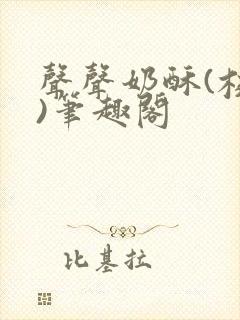 聲聲奶酥(
)筆趣閣
比基拉